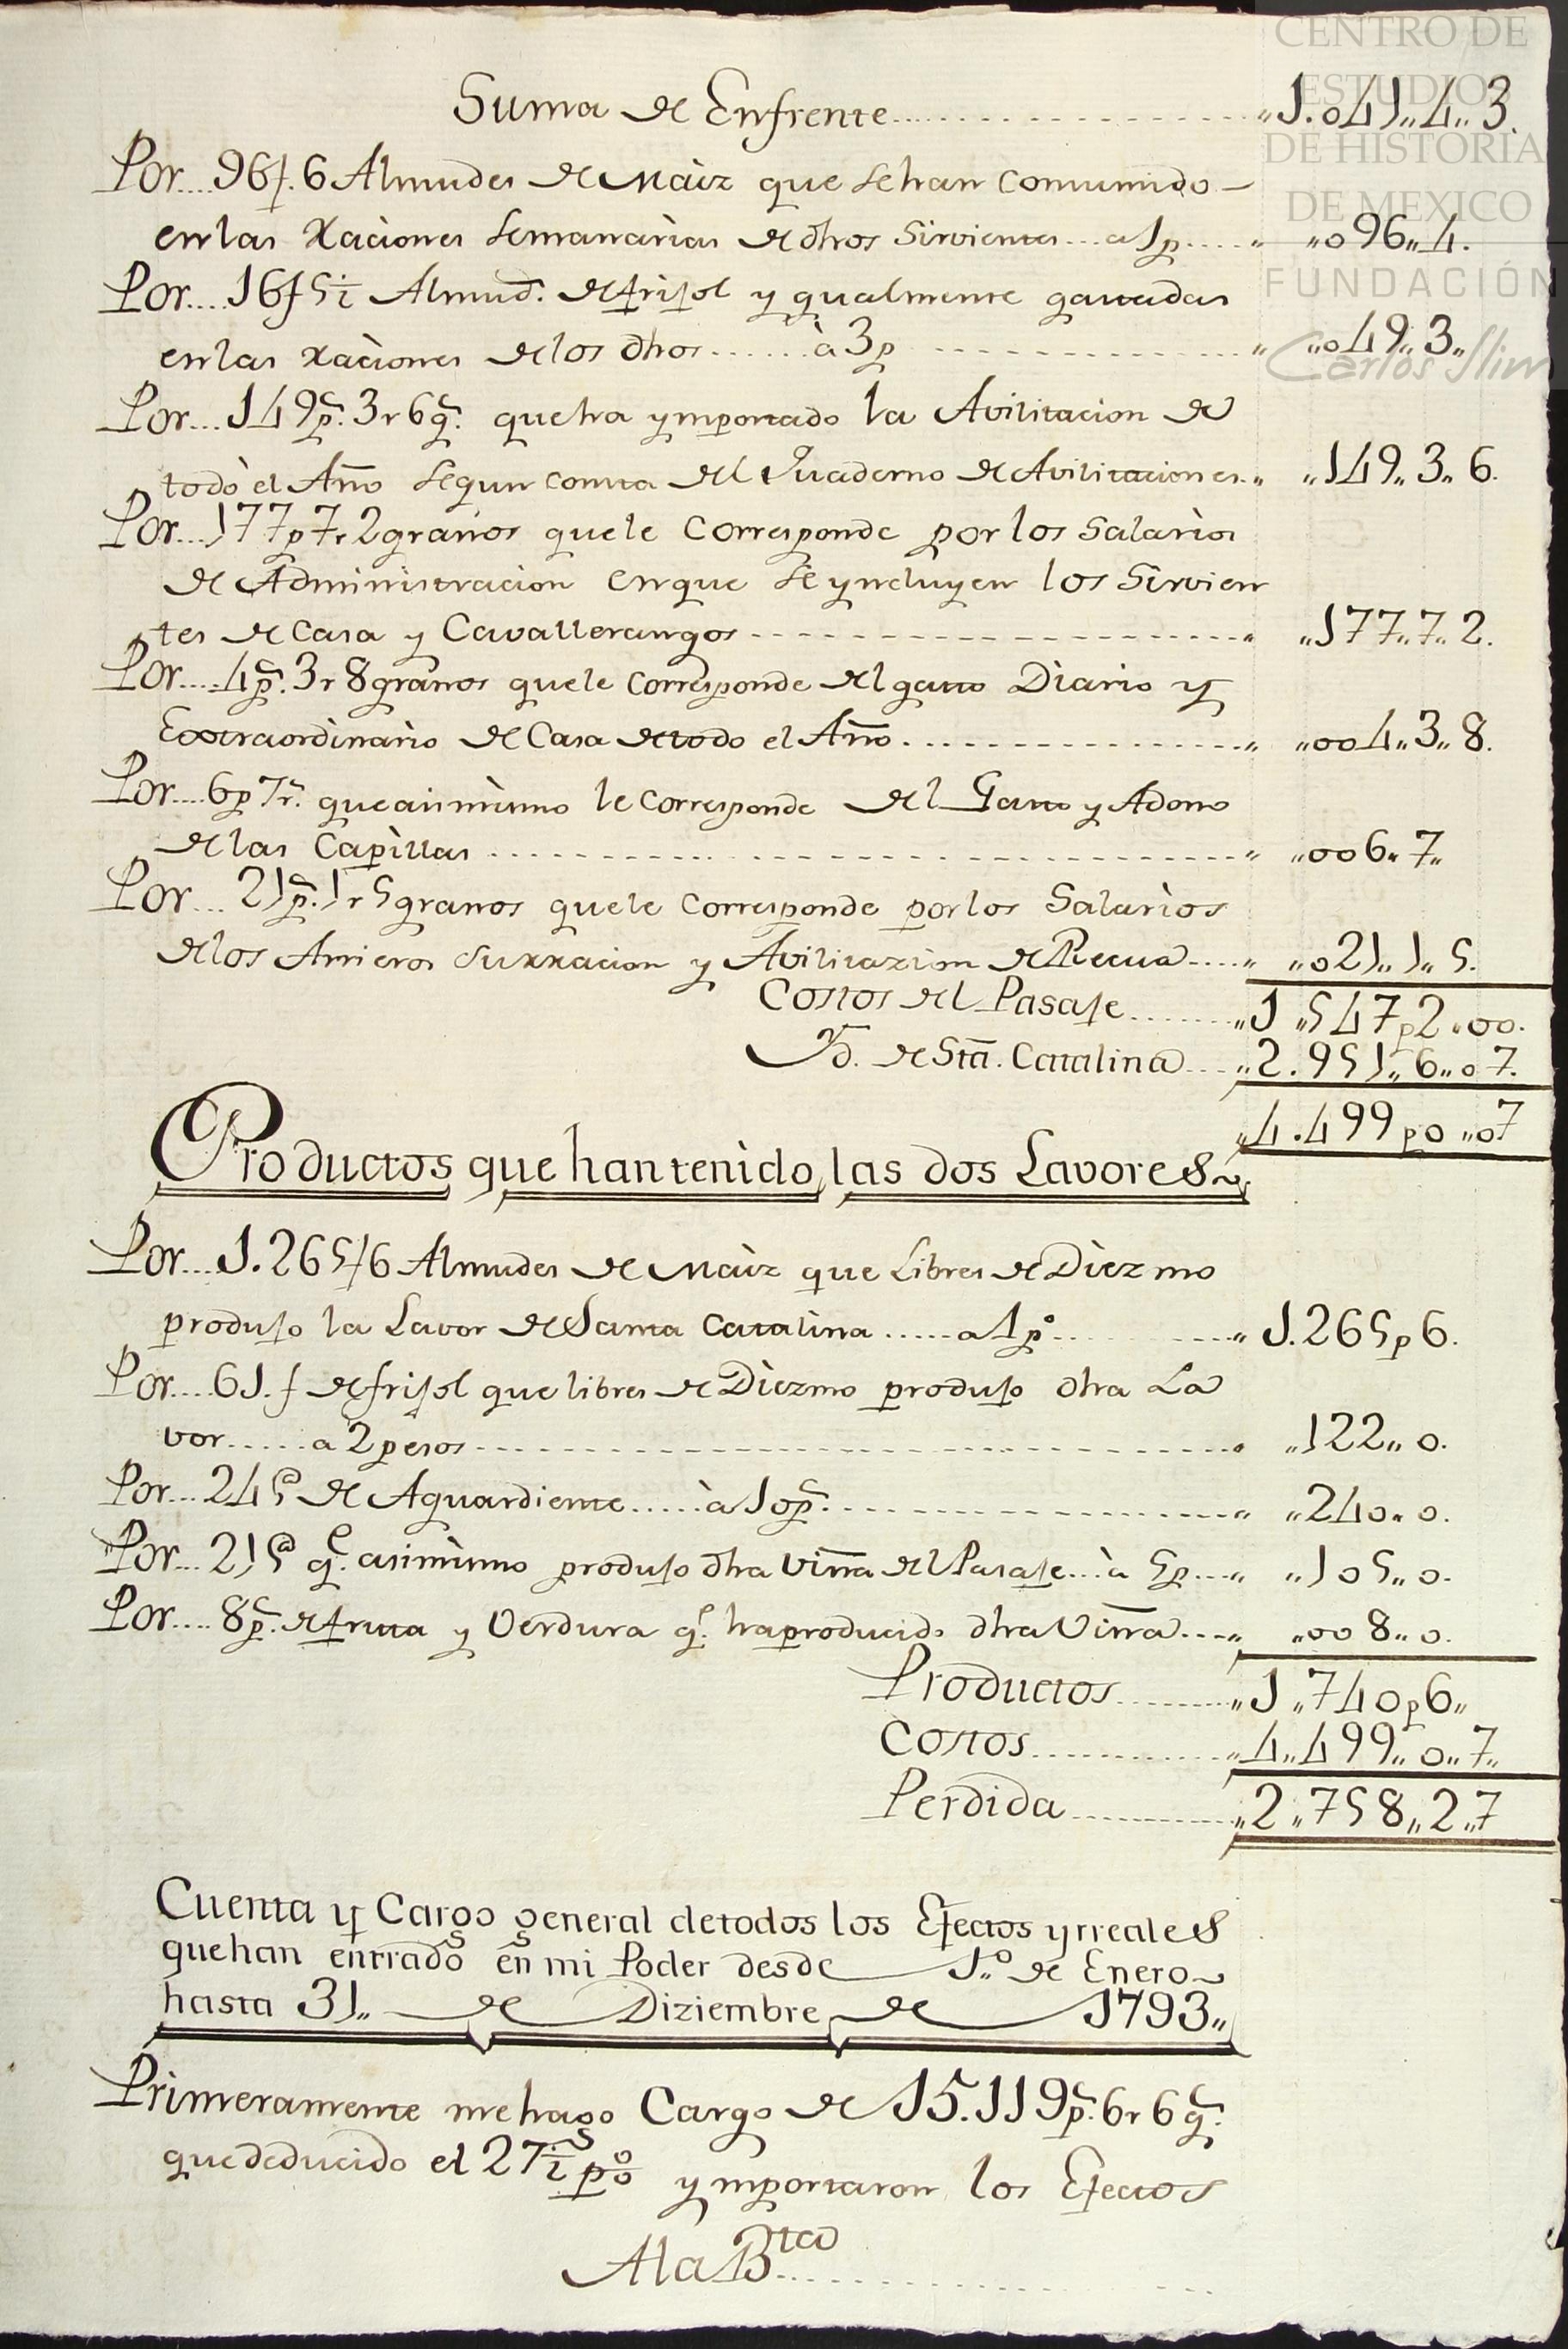 CENTRO DE
ESTUDIOS
DE HISTORIA
DE MEXICO
FUNDACIÓN
Carlos Slim
Suma de Enfrente.................... „1.041„4„3.
Por...96f.6 Almudes de Maiz que se han consumido
en las Raciones semanarias de dhos Sirvientes...a 1p....„ „o96„4.
Por....16f5½ Almud.s de frijol y gualmente gastadas
en las raciones de los dhos......à 3p ...............„ „o49„3„
Por...149p.s 3r 6g.s que ha ymportado la Avilitacion de
todo el Año segun consta del Quaderno de Avilitaciones.„ „149„3„6.
Por...177p7r2granos que le Corresponde por los Salarios
de Administracion en que se yncluyen los Sirvien
tes de Casa y Cavallerangos------------------„ „177„7„2.
Por....4p.s 3r 8granos que le Corresponde del gasto Diario y
Extraordinario de Casa de todo el Año...............„ „oo4„3„8.
Por....6p7r.s que asimismo le Corresponde del Gasto y Adorno
de las Capillas...............................„ „oo6„7„
Por...21p.s 1r 5granos que le Corresponde por los Salarios
de los Arrieros su rracion y Avilitazion de Recua....„ „o21„1„5.
Costos del Pasaje........„1„547p2„oo.
Yd. de Sta. Catalina...„2.951„6„o7.
„4.499p0„o7
Productos que han tenido las dos Lavores
Por...1.265f6 Almudes de Maiz que Libres de Diezmo
produjo la Lavor de Santa Catalina.....a 1p.o..........„ 1.265p6.
Por....61.f de frijol que libres de Diezmo produjo dha La
vor.....a 2pesos-------------------------. „122„o.
Por...24 de Aguardiente.....à 1op.s................„ „24o„o.
Por...21 q.e asimismo produjo dha Viña del Pasaje...à 5p...„ „1o5„o.
Por....8p.s de fruta y Verdura q.e ha producido dha Viña....„ „oo8„o.
Productos.........„1„74op6„
Costos............„4„499„o„7„
Perdida...........„2„758„2„7
Cuenta y Cargo general de todos los Efectos y rreales
que han entrado en mi Poder desde 1.o de Enero
hasta 31„ de Diziembre de 1793„
Primeramente me hago Cargo de 15.119p.s 6r 6g.s
que deducido el 27½ p%o ymportaron los Efectos
A la Bta